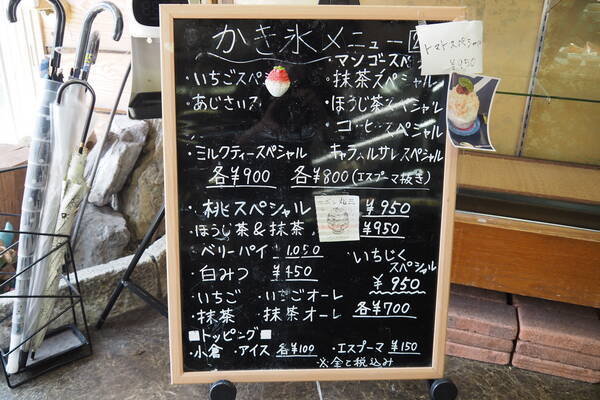 かき氷メニュー
・いちごスペ
・マンゴースペ
・あじさいス
・抹茶スペシャル
・ほうじ茶スペシャル
・コーヒースペシャル
・ミルクティースペシャル
キャラメルサレスペシャル
各¥900 各¥800(エスプーマ抜き)
・桃スペシャル ¥950
・ほうじ茶&抹茶 ¥950
・ベリーパイ 1,050
・白みつ ¥450
・いちじくスペシャル
¥950
・いちご ・いちごオーレ
・抹茶 ・抹茶オーレ 各¥700
■トッピング■
・小倉 ・アイス 各¥100 ・エスプーマ ¥150
※全て税込み
トマトスペシャル
¥950